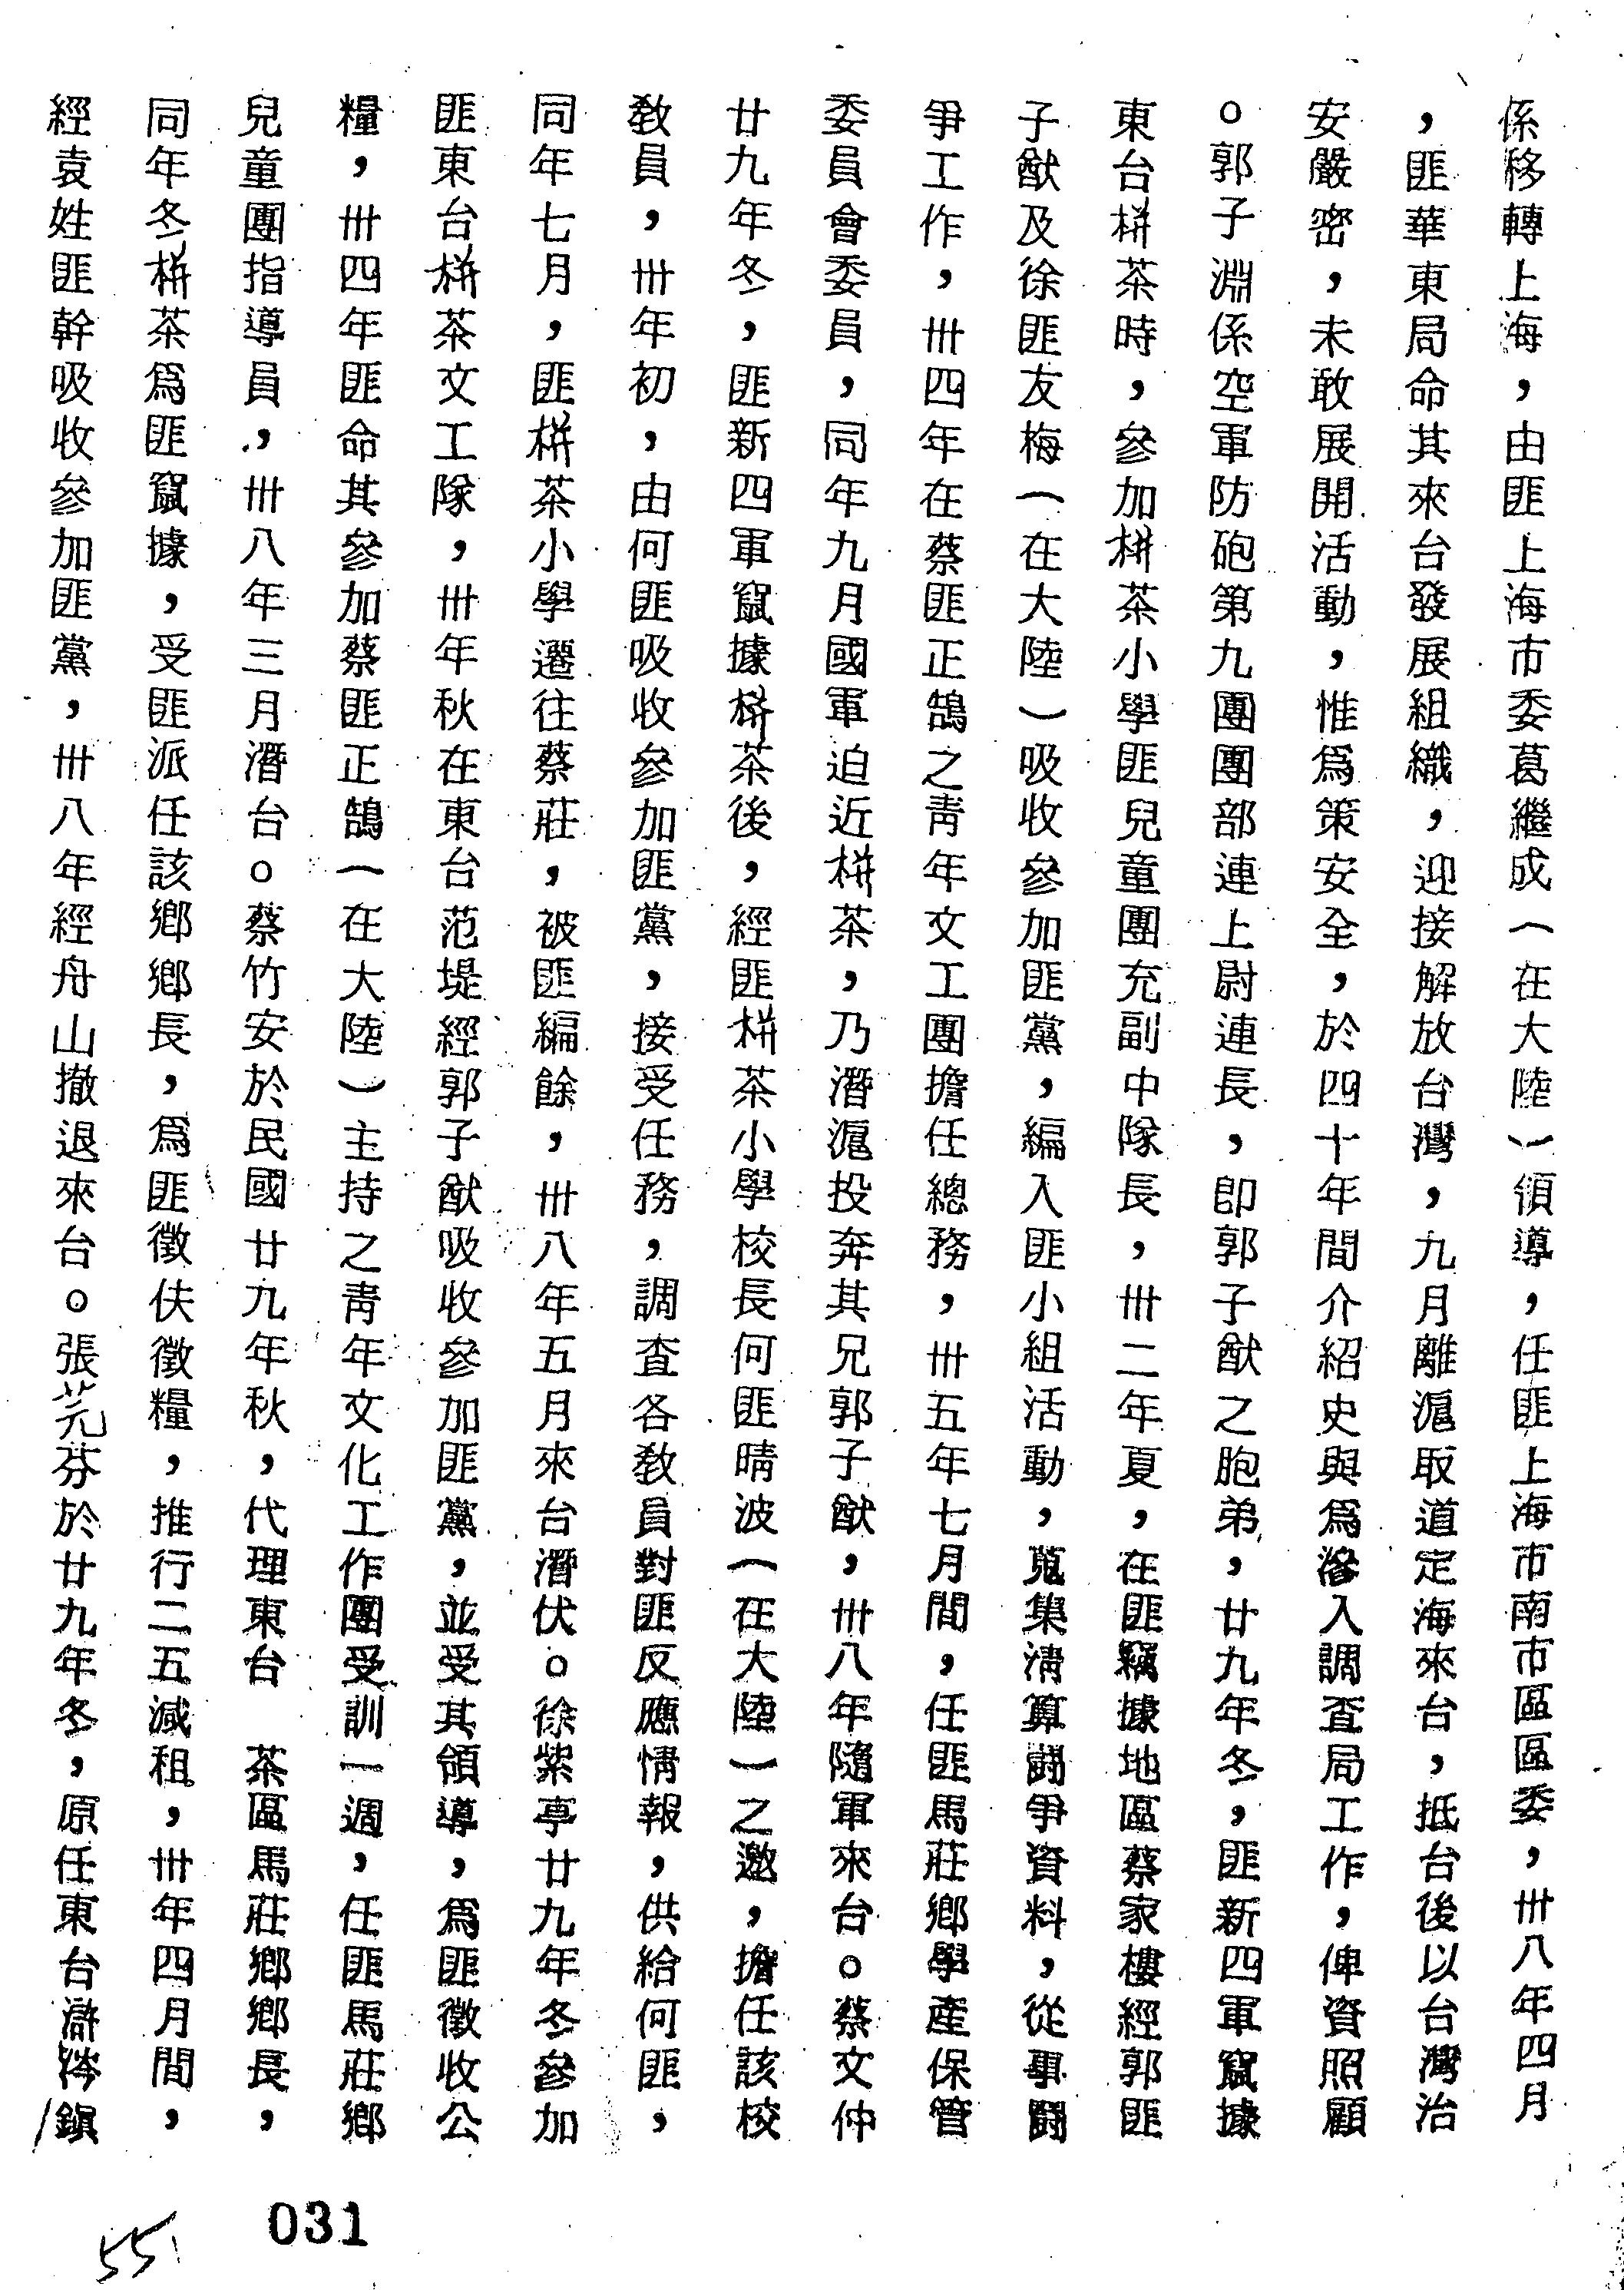 係移轉上海，由匪上海市委葛繼成（在大陸）領導，任匪上海市南市區區委，卅八年四月
，匪華東局命其來台發展組織，迎接解放台灣，九月離滬取道定海來台，抵台後以台灣治
安嚴密，未敢展開活動，惟為策安全，於四十年間介紹史與為滲入調查局工作，俾資照顧
。郭子淵係空軍防砲第九團團部連上尉連長，即郭子猷之胞弟，廿九年冬，匪新四軍竄據
東台栟茶時，參加栟茶小學匪兒童團充副中隊長，卅二年夏，在匪竊據地區蔡家樓經郭匪
子猷及徐匪友梅（在大陸）吸收參加匪黨，編入匪小組活動，蒐集清算鬪爭資料，從事鬪
爭工作，卅四年在蔡匪正鵠之青年文工團擔任總務，卅五年七月間，任匪馬莊鄉學產保管
委員會委員，同年九月國軍迫近栟茶，乃潛滬投奔其兄郭子猷，卅八年隨軍來台。蔡文仲
廿九年冬，匪新四軍竄據栟茶後，經匪栟茶小學校長何匪晴波（在大陸）之邀，擔任該校
教員，卅年初，由何匪吸收參加匪黨，接受任務，調查各教員對匪反應情報，供給何匪，
同年七月，匪栟茶小學遷往蔡莊，被匪編餘，卅八年五月來台潛伏。徐紫亭廿九年冬參加
匪東台栟茶文工隊，卅年秋在東台范堤經郭子猷吸收參加匪黨，並受其領導，為匪徵收公
糧，卅四年匪命其參加蔡匪正鵠（在大陸）主持之青年文化工作團受訓一週，任匪馬莊鄉
兒童團指導員，卅八年三月潛台。蔡竹安於民國廿九年秋，代理東台　茶區馬莊鄉鄉長，
同年冬栟茶為匪竄據，受匪派任該鄉鄉長，為匪徵伕徵糧，推行二五減租，卅年四月間，
經袁姓匪幹吸收參加匪黨，卅八年經舟山撤退來台。張芫芬於廿九年冬，原任東台滸涔鎮
031
55